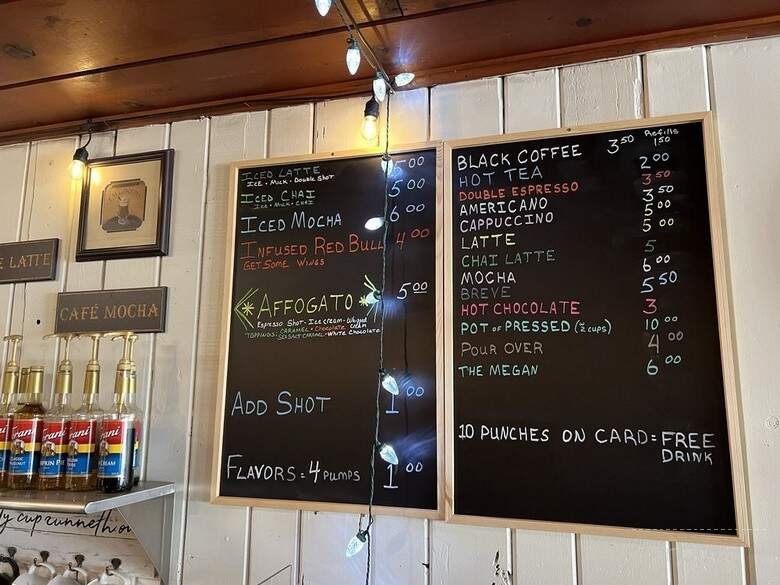 ICED LATTE 5.00
ICE • MILK • DOUBLE SHOT
ICED CHAI 5 00
ICE • MILK • CHAI
ICED MOCHA 6 00
INFUSED RED BULL 4 00
GET SOME WINGS
AFFOGATO 5 00
ESPRESSO SHOT - ICE CREAM - WHIPPED CREAM
TOPPINGS: CARAMEL • CHOCOLATE
SEA SALT CARAMEL • WHITE CHOCOLATE
ADD SHOT 1 00
FLAVORS = 4 PUMPS 1 00
Refills
BLACK COFFEE 3 50 1 50
HOT TEA 2 00
DOUBLE ESPRESSO 3 50
AMERICANO 3 50
CAPPUCCINO 5 00
LATTE 5 00
CHAI LATTE 5
MOCHA 6 00
BREVE 5 50
HOT CHOCOLATE 3
POT OF PRESSED (2 CUPS) 10 00
POUR OVER 4 00
THE MEGAN 6 00
10 PUNCHES ON CARD = FREE
DRINK
E LATTE
CAFÉ MOCHA
rani
rani
rani
PKIN PIE
CREAM
y cup runneth o